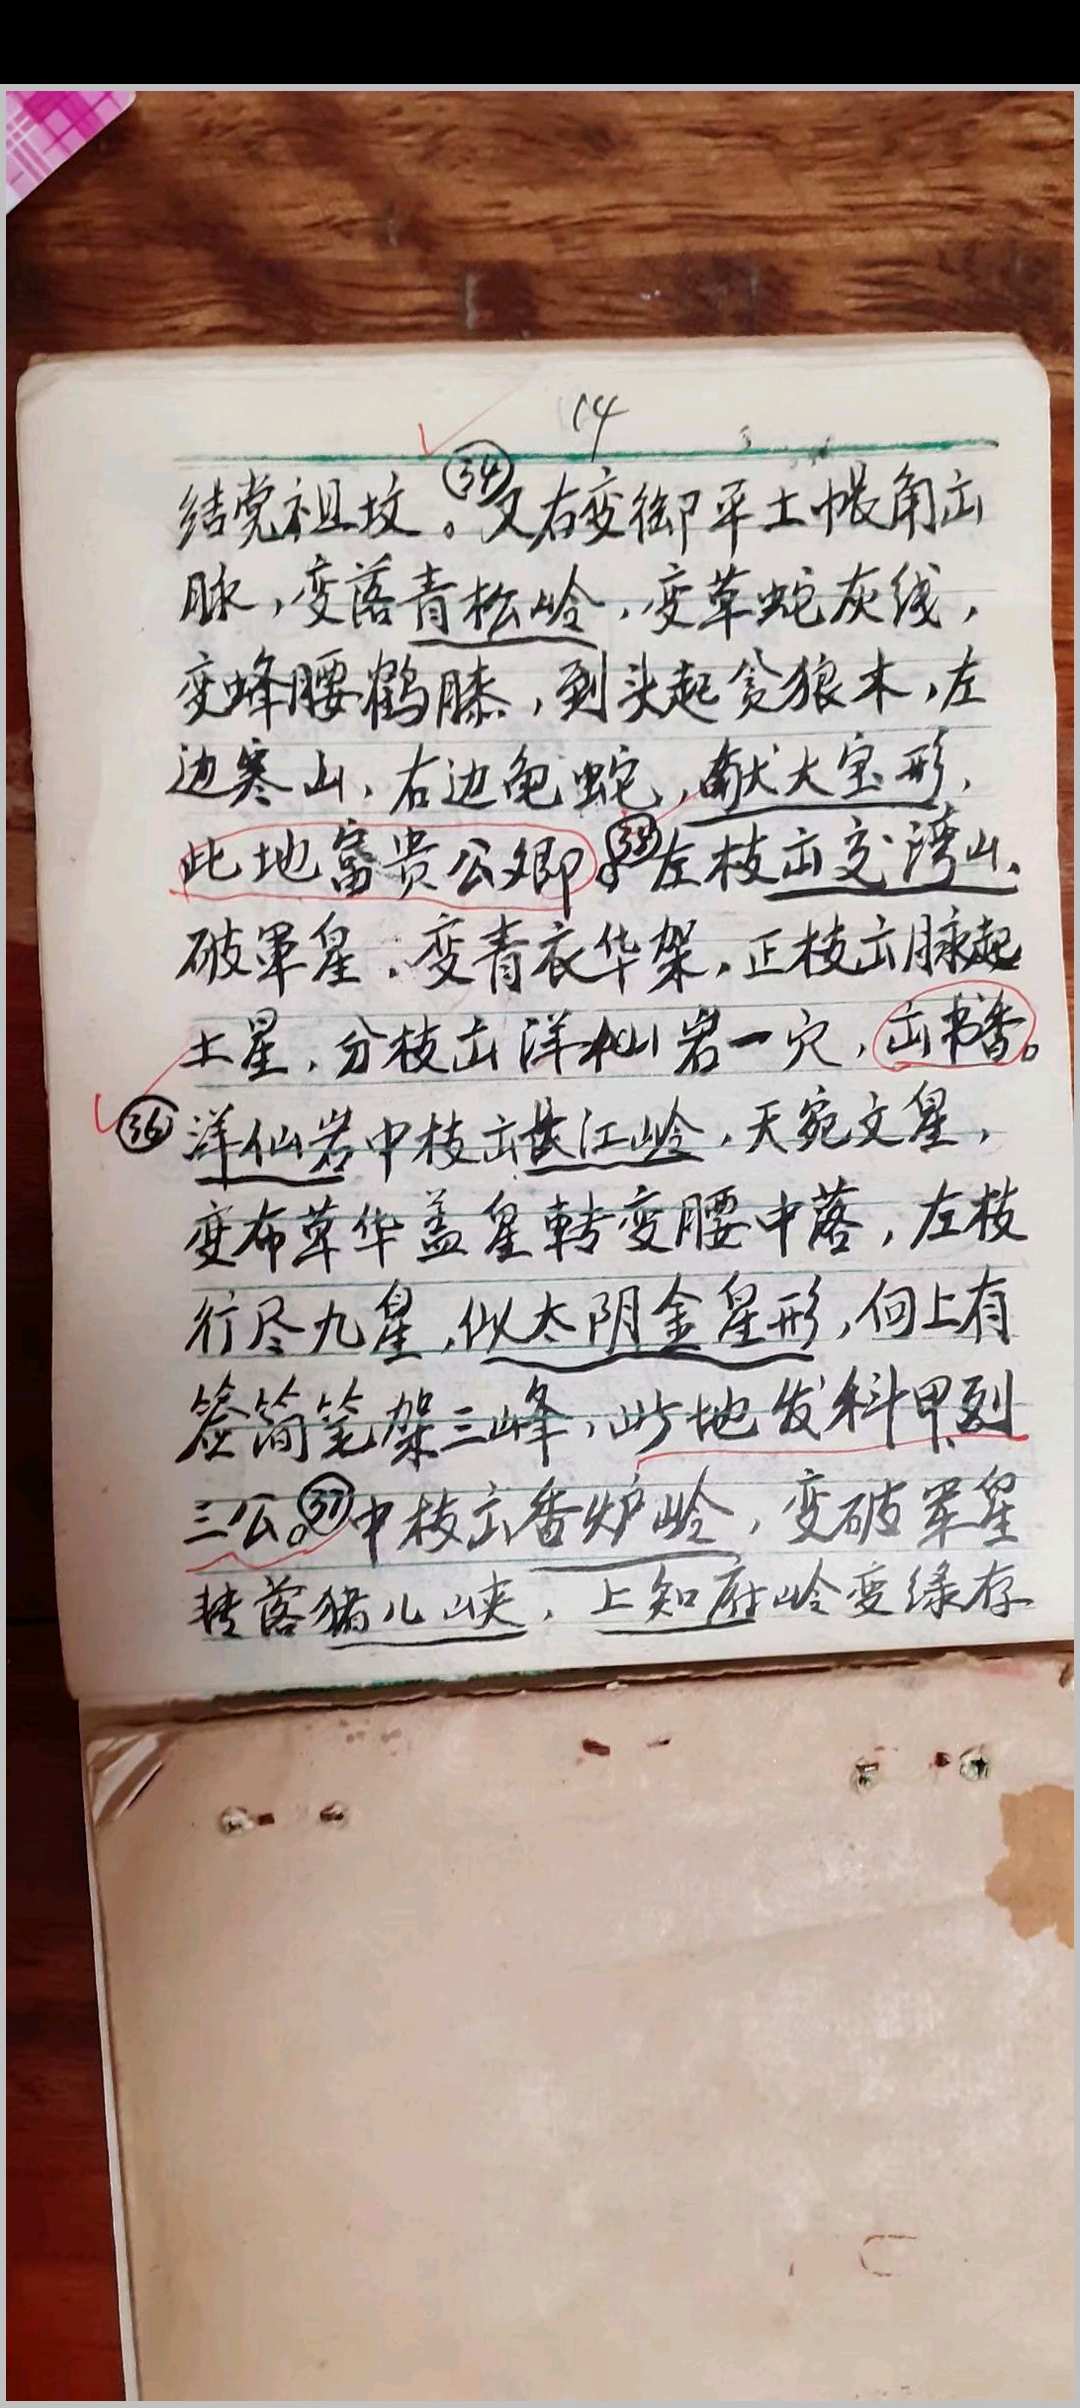 14
结党祖坟。㉞又右变御平土帐角出
脉，变落青松岭，变草蛇灰线，
变蜂腰鹤膝，到头起贪狼木，左
边寒山，右边龟蛇，献大宝形，
此地富贵公卿。㉟左枝出交湾山，
破军星，变青衣华架，正枝出脉起
土星，分枝出洋仙岩一穴，出书香。
㊱洋仙岩中枝出长江岭，天宛文星，
变布草华盖星转变腰中落，左枝
行尽九星，似太阴金星形，向上有
签简笔架三峰，此地发科甲，列
三公。㊲中枝出香炉岭，变破军星
转落猪儿峡，上知府岭变绿存